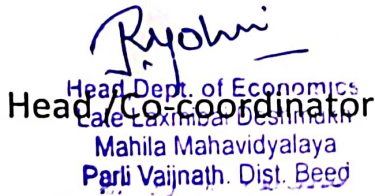 Head Dept. of Economics
Head /Co-coordinator
Late Laxmibai Deshmukh
Mahila Mahavidyalaya
Parli Vaijnath. Dist. Beed